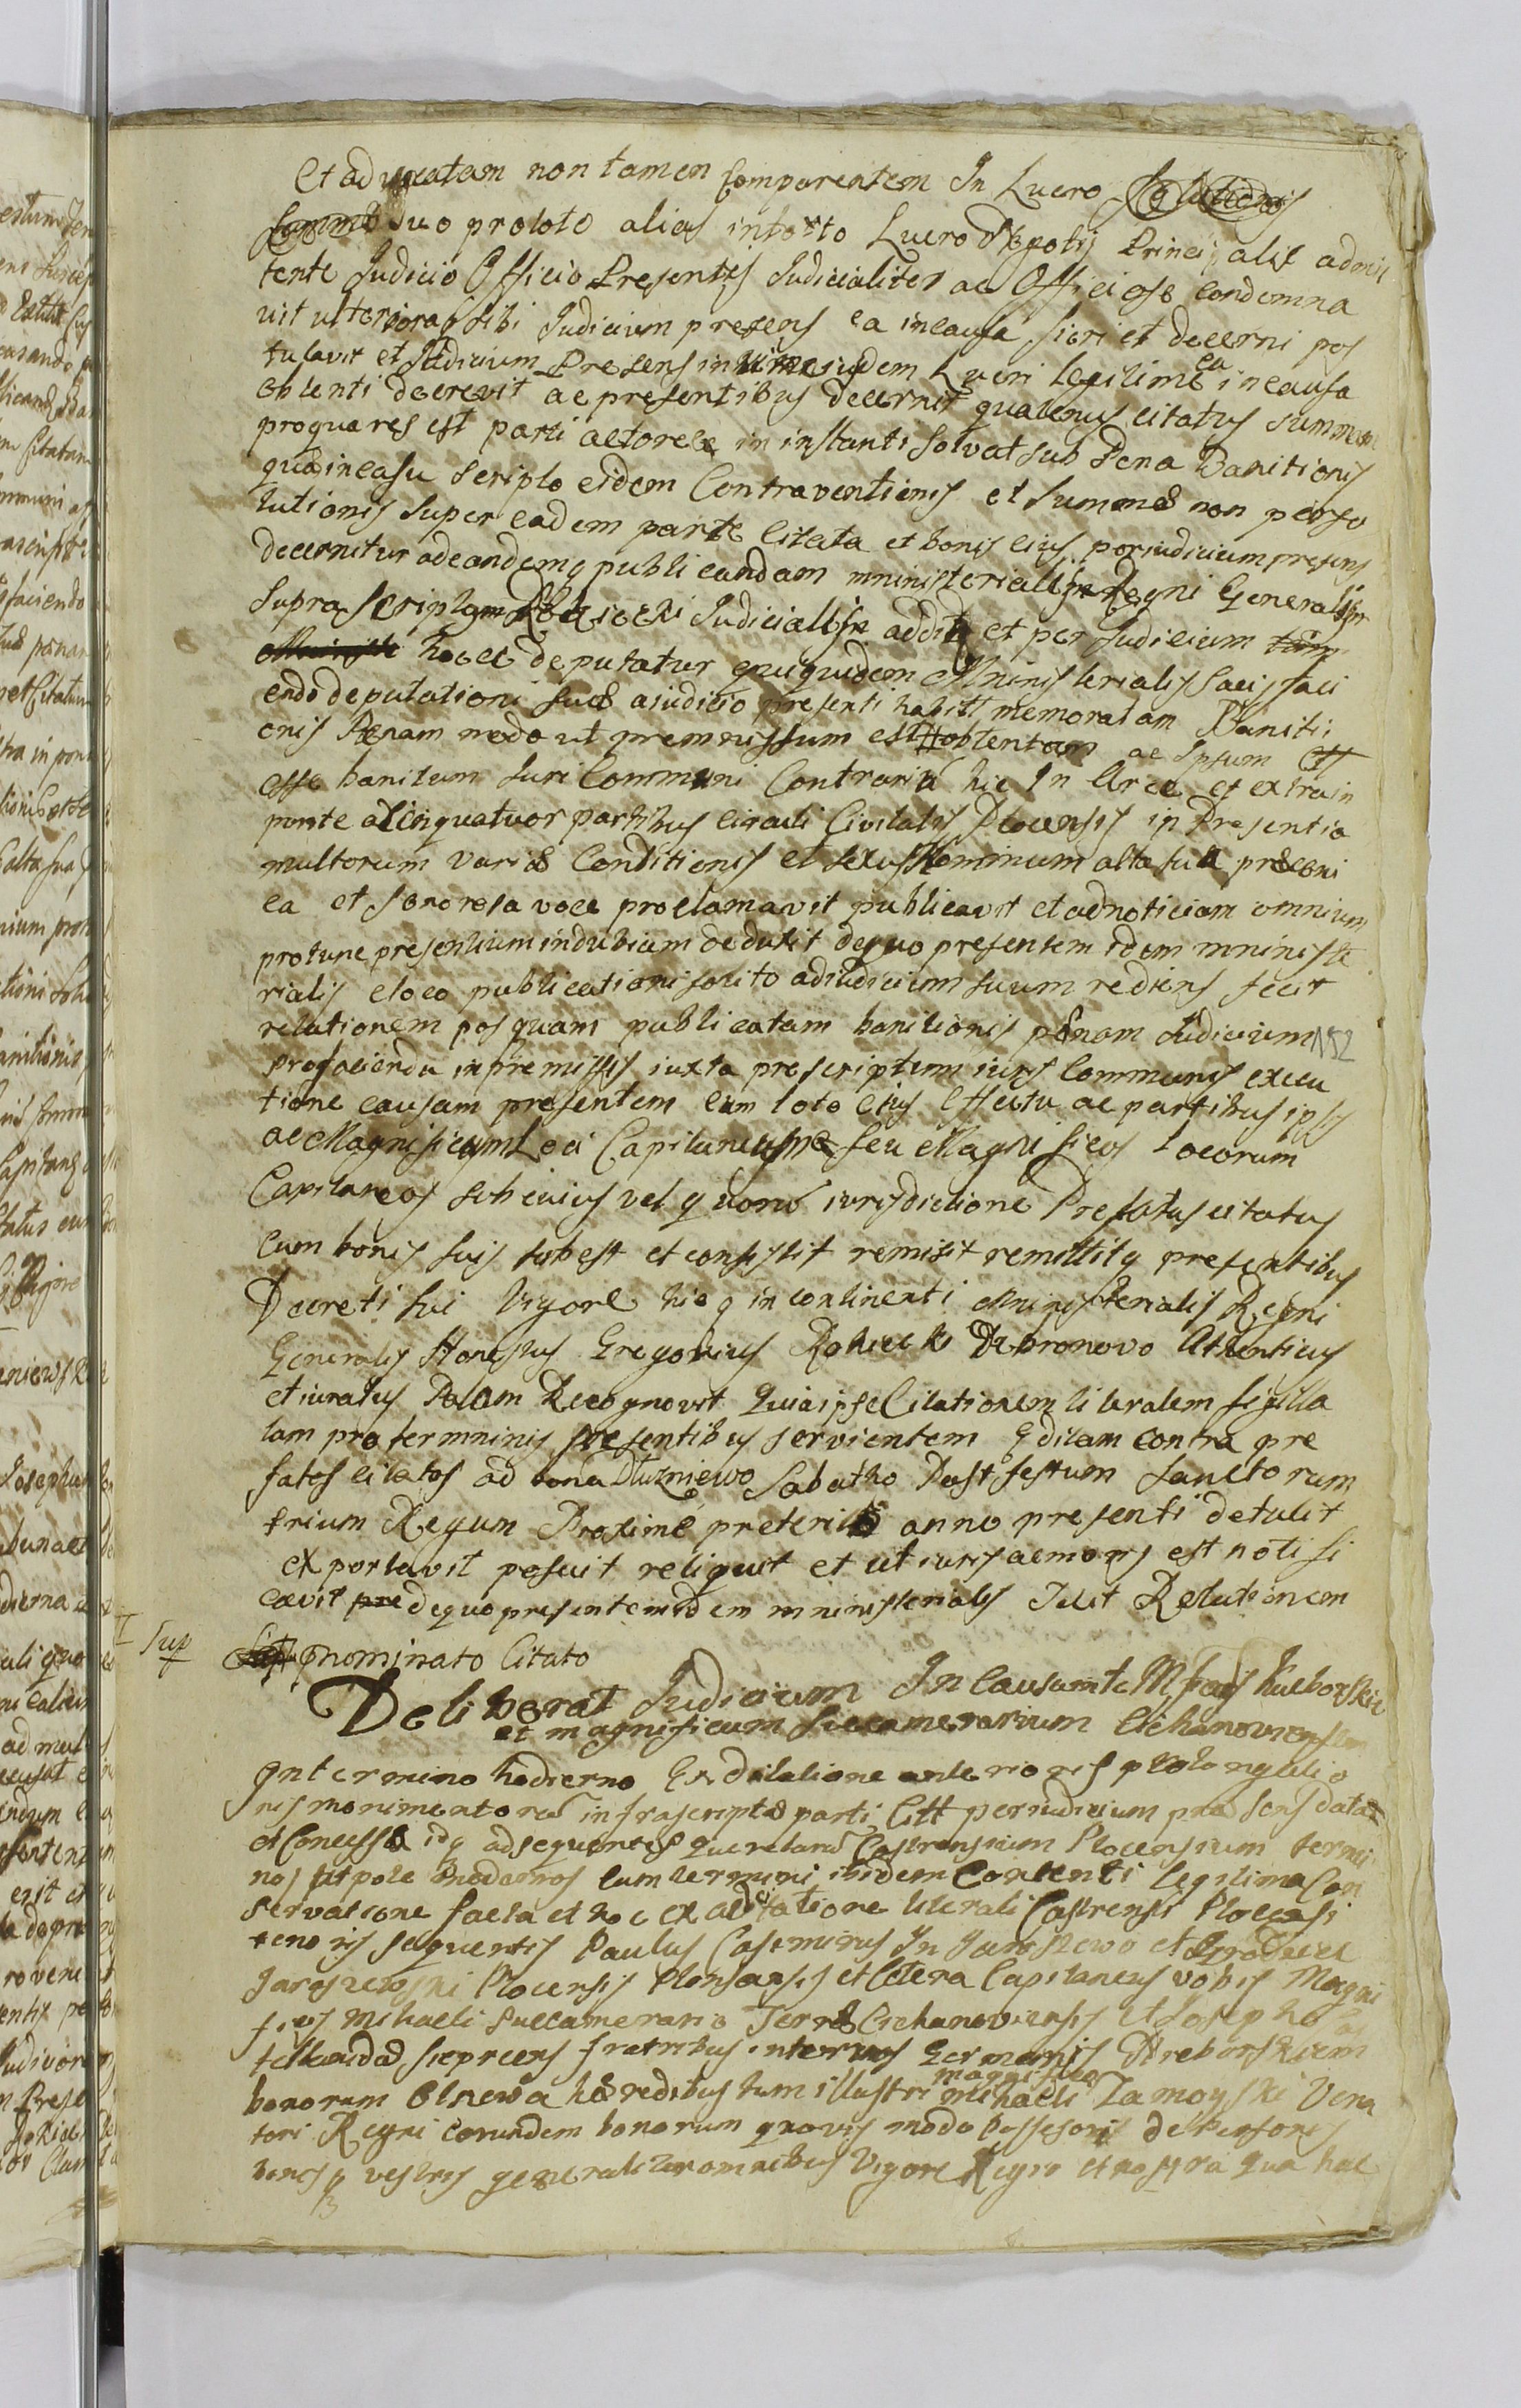 Et ad vocatam non tamen Comparentem In Lucro Solutionis
Summæ suo prototo alias intorto Lucro Negotij Principalis admit
tente Judicio Officio Presentis Judicialiter ac Officiose condemna
vit ulteriora sibi Judicium presens ea incausa fieri et decerni pos
tulavit et Judicium Presens in vim eiusdem Lucri legitime ea incausa
obtenti decrevit ac presentibus decernit quatenus citatus summam
pro qua res est parti actoreæ in instanti solvat sub Pena Banitionis
quâ in casu scripto eidem Contraventionis et Summæ non perso
lutionis super eadem parte Citata et bonis eius per judicium presens
decernitur ad eandemq publicandam ministerialis Regni Generalis
supra scriptam Rokicki Judicialis additg et per Judicium tam
Ministe hocce deputatur qui quidem Ministerialis satisfaci
endo deputationi suæ a iudicio presenti habitt memoratam Baniti
onis Pænam modo ut premissum est obtentam ac Ipsum Citt
esse banitum Juri Communi Contrariũ hic In Arce et extra in
ponte ac in quatuor partibus Circuli Civitatis Plocensis in Presentia
multorum variæ Conditionis et sexus Hominum alta sua præconi
ca et sonorosa voce proclamavit publicavit et ad noticiam omnium
protunc presentium indubiam deduxit de quo presentem idem ministe
rialis e loco publicationis solito ad iudicium suum rediens fecit
relationem pos quam publicatam banitionis pænam Judicium
152
pro facienda in premissis iuxta prescriptum iuris Communis execu
tione causam presentem cum toto eius effectu ac partibus ipsis
ac Magnificum Loci Capitaneum seu Magnificos Locorum
Capitaneos sub cuius vel quorũ iurisdictione Prefatus citatus
cum bonis suis subest et consistit remisit remittitq presentibus
Decreti sui Vigore hicq in continenti Ministerialis Regni
Generalis Honestus Gregorius Rokicki De bronovo Athenticus
et iuratus Palam Recognovit Quia ipse Citationem literalem sigilla
tam pro terminis presentibus servientem Editam contra pre
fatos citatos ad bona Dłużniewo Sabatho Post festum Sanctorum
trium Regum Proxime preterito anno presenti detulit
exportavit posuit reliquit et ut iuris ac moris est notifi
cavit pre de quo presentem idem ministerialis Fecit Relationem
Sup
nominato Citato
Deliberat Judicium In Causam te Mfcos Kueborskie
et magnificum Succamerarium Cichanoviensem
In termino hodierno Ex dilatione anterioris prolongatio
nis monimentorũ infrascriptæ parti Citt per iudicium præsens datæ
et Concessæ idq ad sequentes Querelarũ Castrensium Plocensium termi
nos utpote modernos cum termini ibidem Contenti legitima Con
servatione facta et hoc ex ad citatione literali Castrensi Plocensi
tenoris sequentis Paulus Casimirus In Jaroszewo et
Jaroszewski Plocensis Plonscensis et Cetera Capitaneus vobis Magni
ficis Mihaeli Succamerario Terræ Ciechanoviensis et Josepho
fratribus inter vos Germanis
bonorum Olszewa hæredibus tum illustri magnifico Mihaeli Zamoyski Vena
tori Regni eorundem bonorum quovis modo Possesoris de Personis
bonisq vestris generaliter omnibus Vigore Regio et nostra qua hac